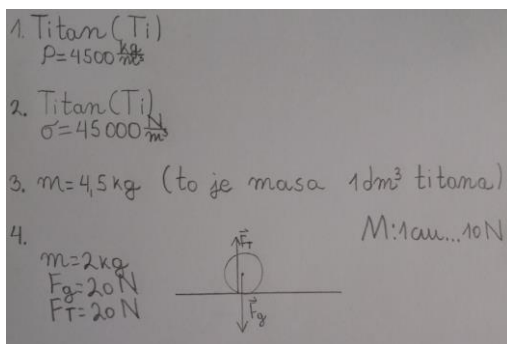 1. Titan (Ti)
ρ=4500 kg/m³
2. Titan (Ti)
σ=45 000 N/m³
3. m=4,5 kg (to je masa 1dm³ titana)
4.
M:1cm...10N
m=2kg
Fg=20N
FT=20N
FT
Fg